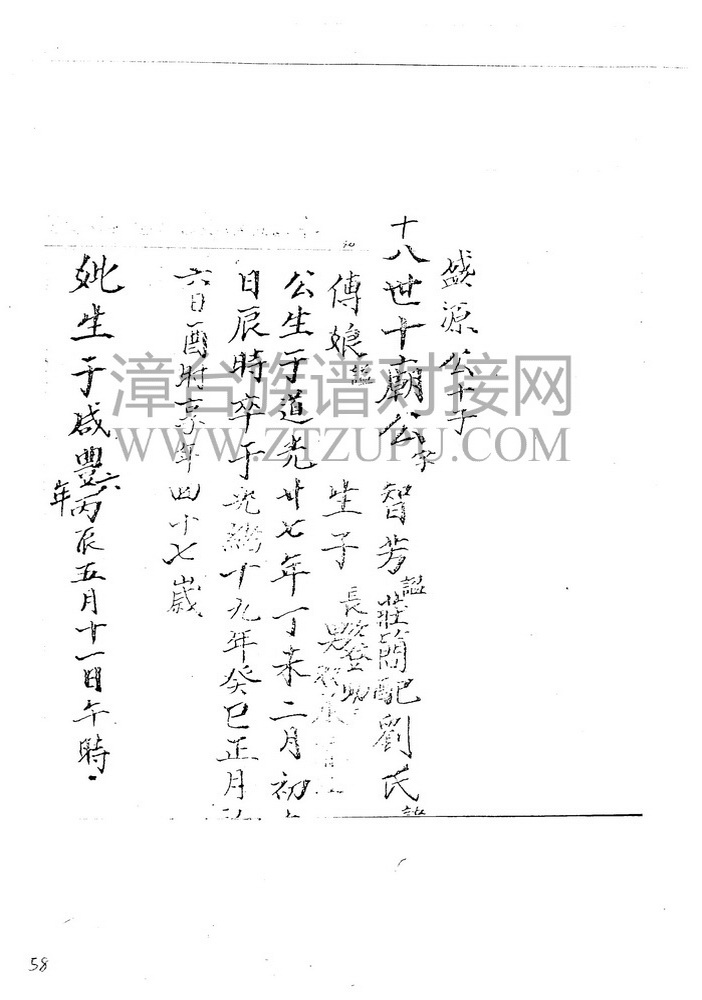 盛源公十子
十八世十廟公字智芳諡莊簡配劉氏諡
傳娘諡 生子長
公生于道光廿七年丁未二月初
日辰時卒于光緒十九年癸巳正月初
六日酉時享年四十七歲
妣生于咸豐六年丙辰五月十一日午時
漳台族谱对接网
WWW.ZTZUPU.COM
58